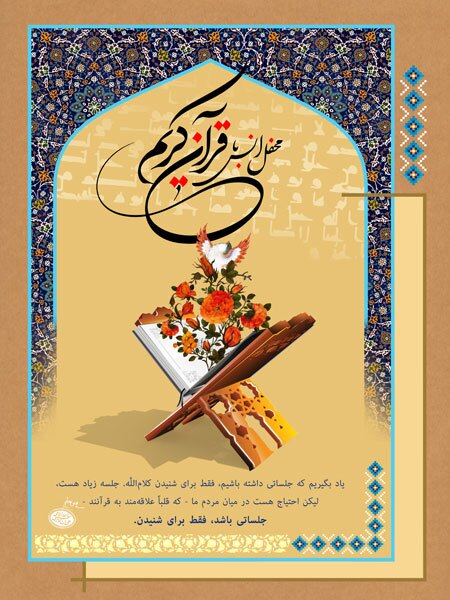 محفل انس با قرآن کریم
یاد بگیریم که جلساتی داشته باشیم، فقط برای شنیدن کلام‌اللّه. جلسه زیاد هست،
لیکن احتیاج هست در میان مردم ما - که قلباً علاقه‌مند به قرآنند -
جلساتی باشد، فقط برای شنیدن.